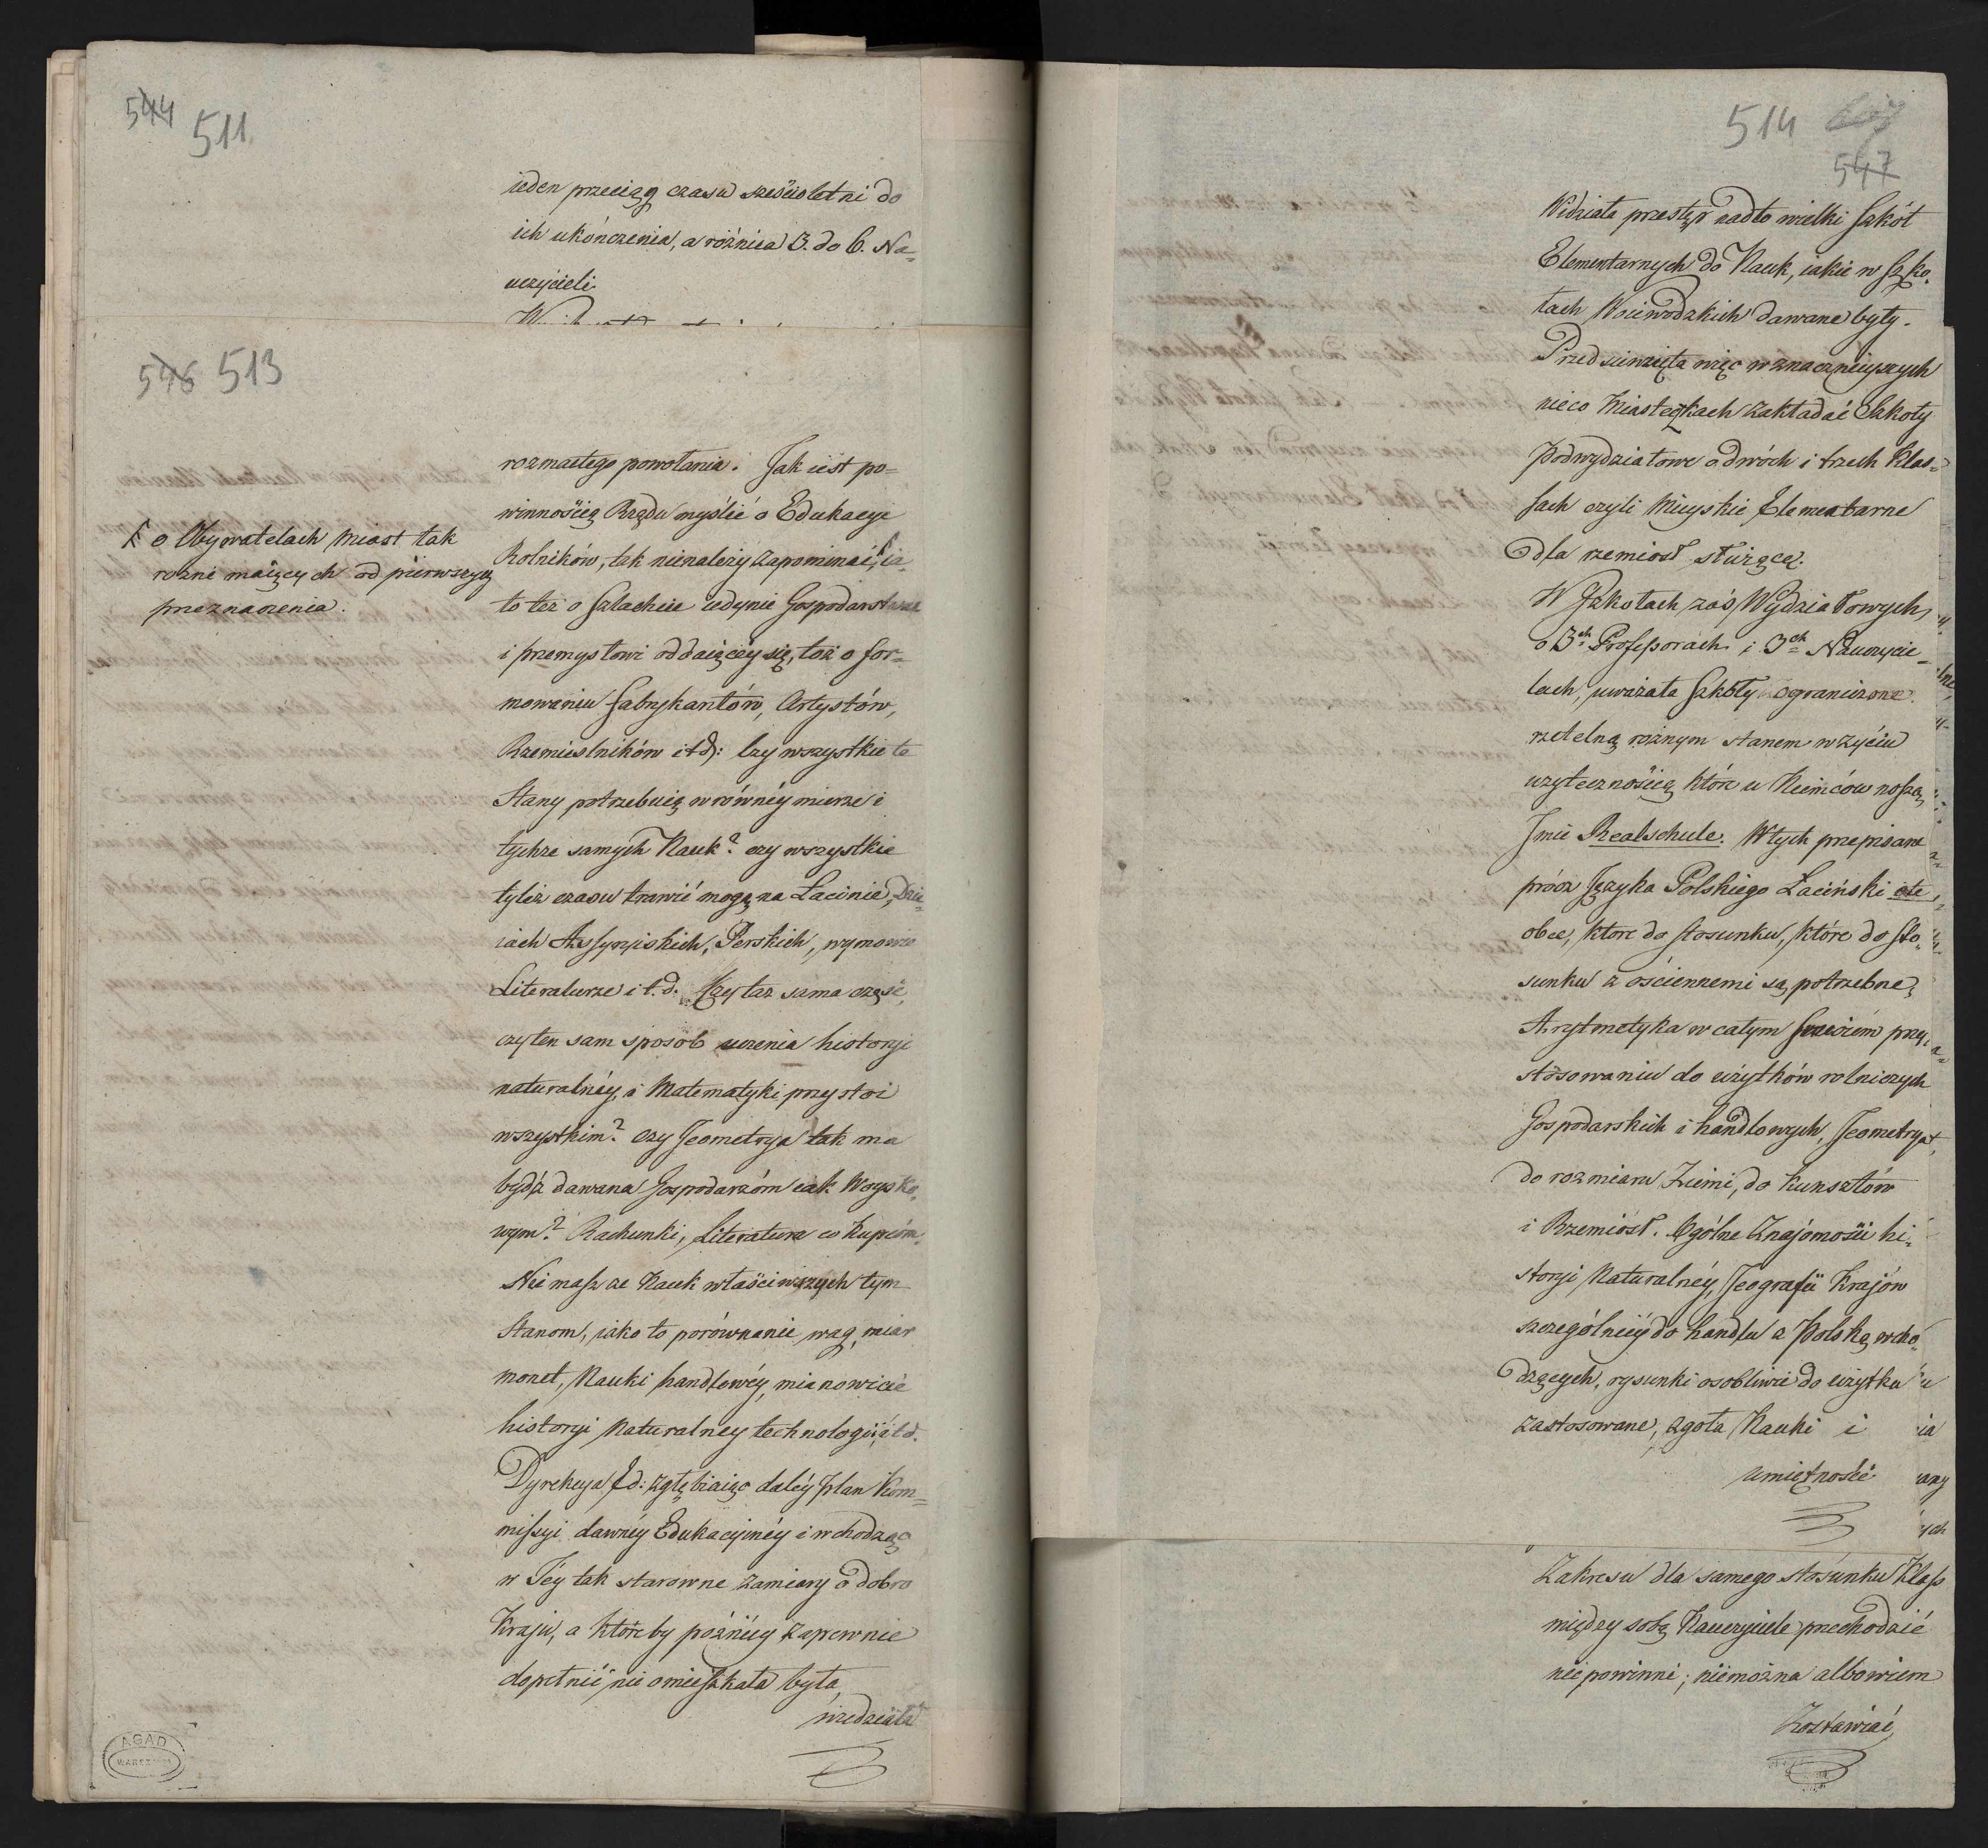 544 511
ieden przeciąg czasu sześcioletni do
ich ukończenia, a różnica 3. do 6. Na=
uczycieli.
546 513
rozmaitego powołania. Jak iest po=
winnością Rządu myślić o Edukacyi
Rolników, tak nienależy zapominać, ia=
to też o Szlachcie iedynie Gospodarstwu
i przemysłowi oddaiącey się, toż o for=
mowaniu fabrykantów, Artystów,
Rzemieslników itd: Czy wszystkie te
Stany potrzebuią w równéy mierze i
tychże samych Nauk? czy wszystkie
tyleż czasu trawić mogą na Łacinie, Dzie=
iach Assyryiskich, Perskich, wymowie
Literaturze i t.d. Czy taż sama część,
czy ten sam sposób uczenia historyi
naturalnéy, i Matematyki przystoi
wszystkim? Czy Jeometrya tak ma
bydź dawana Gospodarzóm iak Woysko=
wym? Rachunki, Literatura co kupcóm,
Nie masz że Nauk właściwszych tym
Stanom, iako to porównanie wag, miar
monet, Nauki handlowéy, mianowicie
historyi Naturalney technologii, itd.
Dyrekcya Ed: zgłębiaiąc daléy Plan Kom=
missyi dawnéy Edukacyinéy i wchodząc
w Jey tak starowne zamiary o dobro
Kraju, a któreby poźniéy zapewnie
dopełnić nie omieszkała była,
wiedziała
ſ o Obywatelach Miast tak
rożne maiących od pierwszych
przeznaczenia.
514
547
Widziała przestęp nadto wielki Szkół
Elementarnych do Nauk, iakie w Szko=
łach Woiewodzkich dawane były.
Przedsiewzięła więc w znacznieyszych
nieco Miasteczkach zakładać Szkoły
Podwydziałowe o dwóch i trzech Klas=
sach czyli Mieyskie Elementarne
dla rzemiosł służącé.
W Szkołach zaś Wydziałowych,
o 3ch Professorach i 3ch Nauczycie=
lach, uważała Szkoły ograniczone
rzetelną rożnym stanem w życiu
użytecznością które u Niemców noszą
Jmie Realschule. W tych przepisane
prócz Języka Polskiego Łaciński i te
obce, ktore do stosunku, które do sto=
sunku z ościennemi są potrzebne,
Arytmetyka w całym swoiém przy=
stósowaniu do użytków rolniczych
Gospodarskich i handlowych, Jeometrya,
do rozmiaru Ziemi, do kunsztów
i Rzemiósł. Ogólne Znajomości hi=
storyi Naturalnéy, Jeografii Krajów
szczególniéy do handlu z Polską wcho=
dzących, rysunki osobliwie do użytku
zastosowane, zgoła Nauki i
umieiętność
Zakresu dla samego stósunku Klass
między sobą Nauczyciele przechodzić
nie powinni; niemożna albowiem
Zostawiać,
AGAD
WARSZAWA